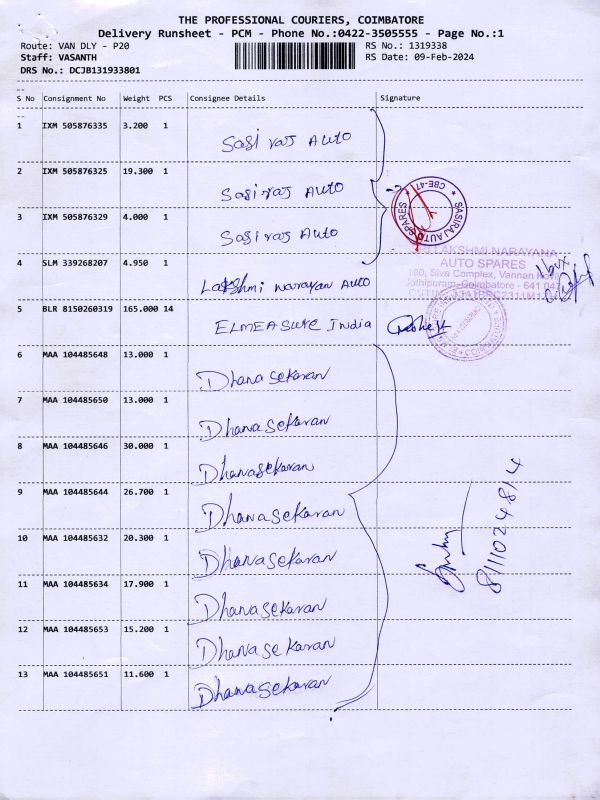 THE PROFESSIONAL COURIERS, COIMBATORE
Delivery Runsheet - PCM - Phone No.:0422-3505555 - Page No.:1
Route: VAN DLY - P20 RS No.: 1319338
Staff: VASANTH RS Date: 09-Feb-2024
DRS No.: DCJB131933801
S No Consignment No Weight PCS Consignee Details Signature
1 IXM 505876335 3.200 1 Sasi raj Auto
2 IXM 505876325 19.300 1 Sasi raj Auto
3 IXM 505876329 4.000 1 Sasi raj Auto
CBE-47
SASIRAJ AUTO SPARES
4 SLM 339268207 4.950 1 Lakshmi narayan Auto
LAKSHMI NARAYANA
AUTO SPARES
190, Silva Complex, Vannan
Jothipuram, Coimbatore - 641 047
5 BLR 8150260319 165.000 14 ELMEASURE India
6 MAA 104485648 13.000 1 Dhana sekaran
7 MAA 104485650 13.000 1 Dhana sekaran
8 MAA 104485646 30.000 1 Dhanasekaran
9 MAA 104485644 26.700 1 Dhanasekaran
10 MAA 104485632 20.300 1 Dhanasekaran
11 MAA 104485634 17.900 1 Dhanasekaran
12 MAA 104485653 15.200 1 Dhanasekaran
13 MAA 104485651 11.600 1 Dhanasekaran
8111024814